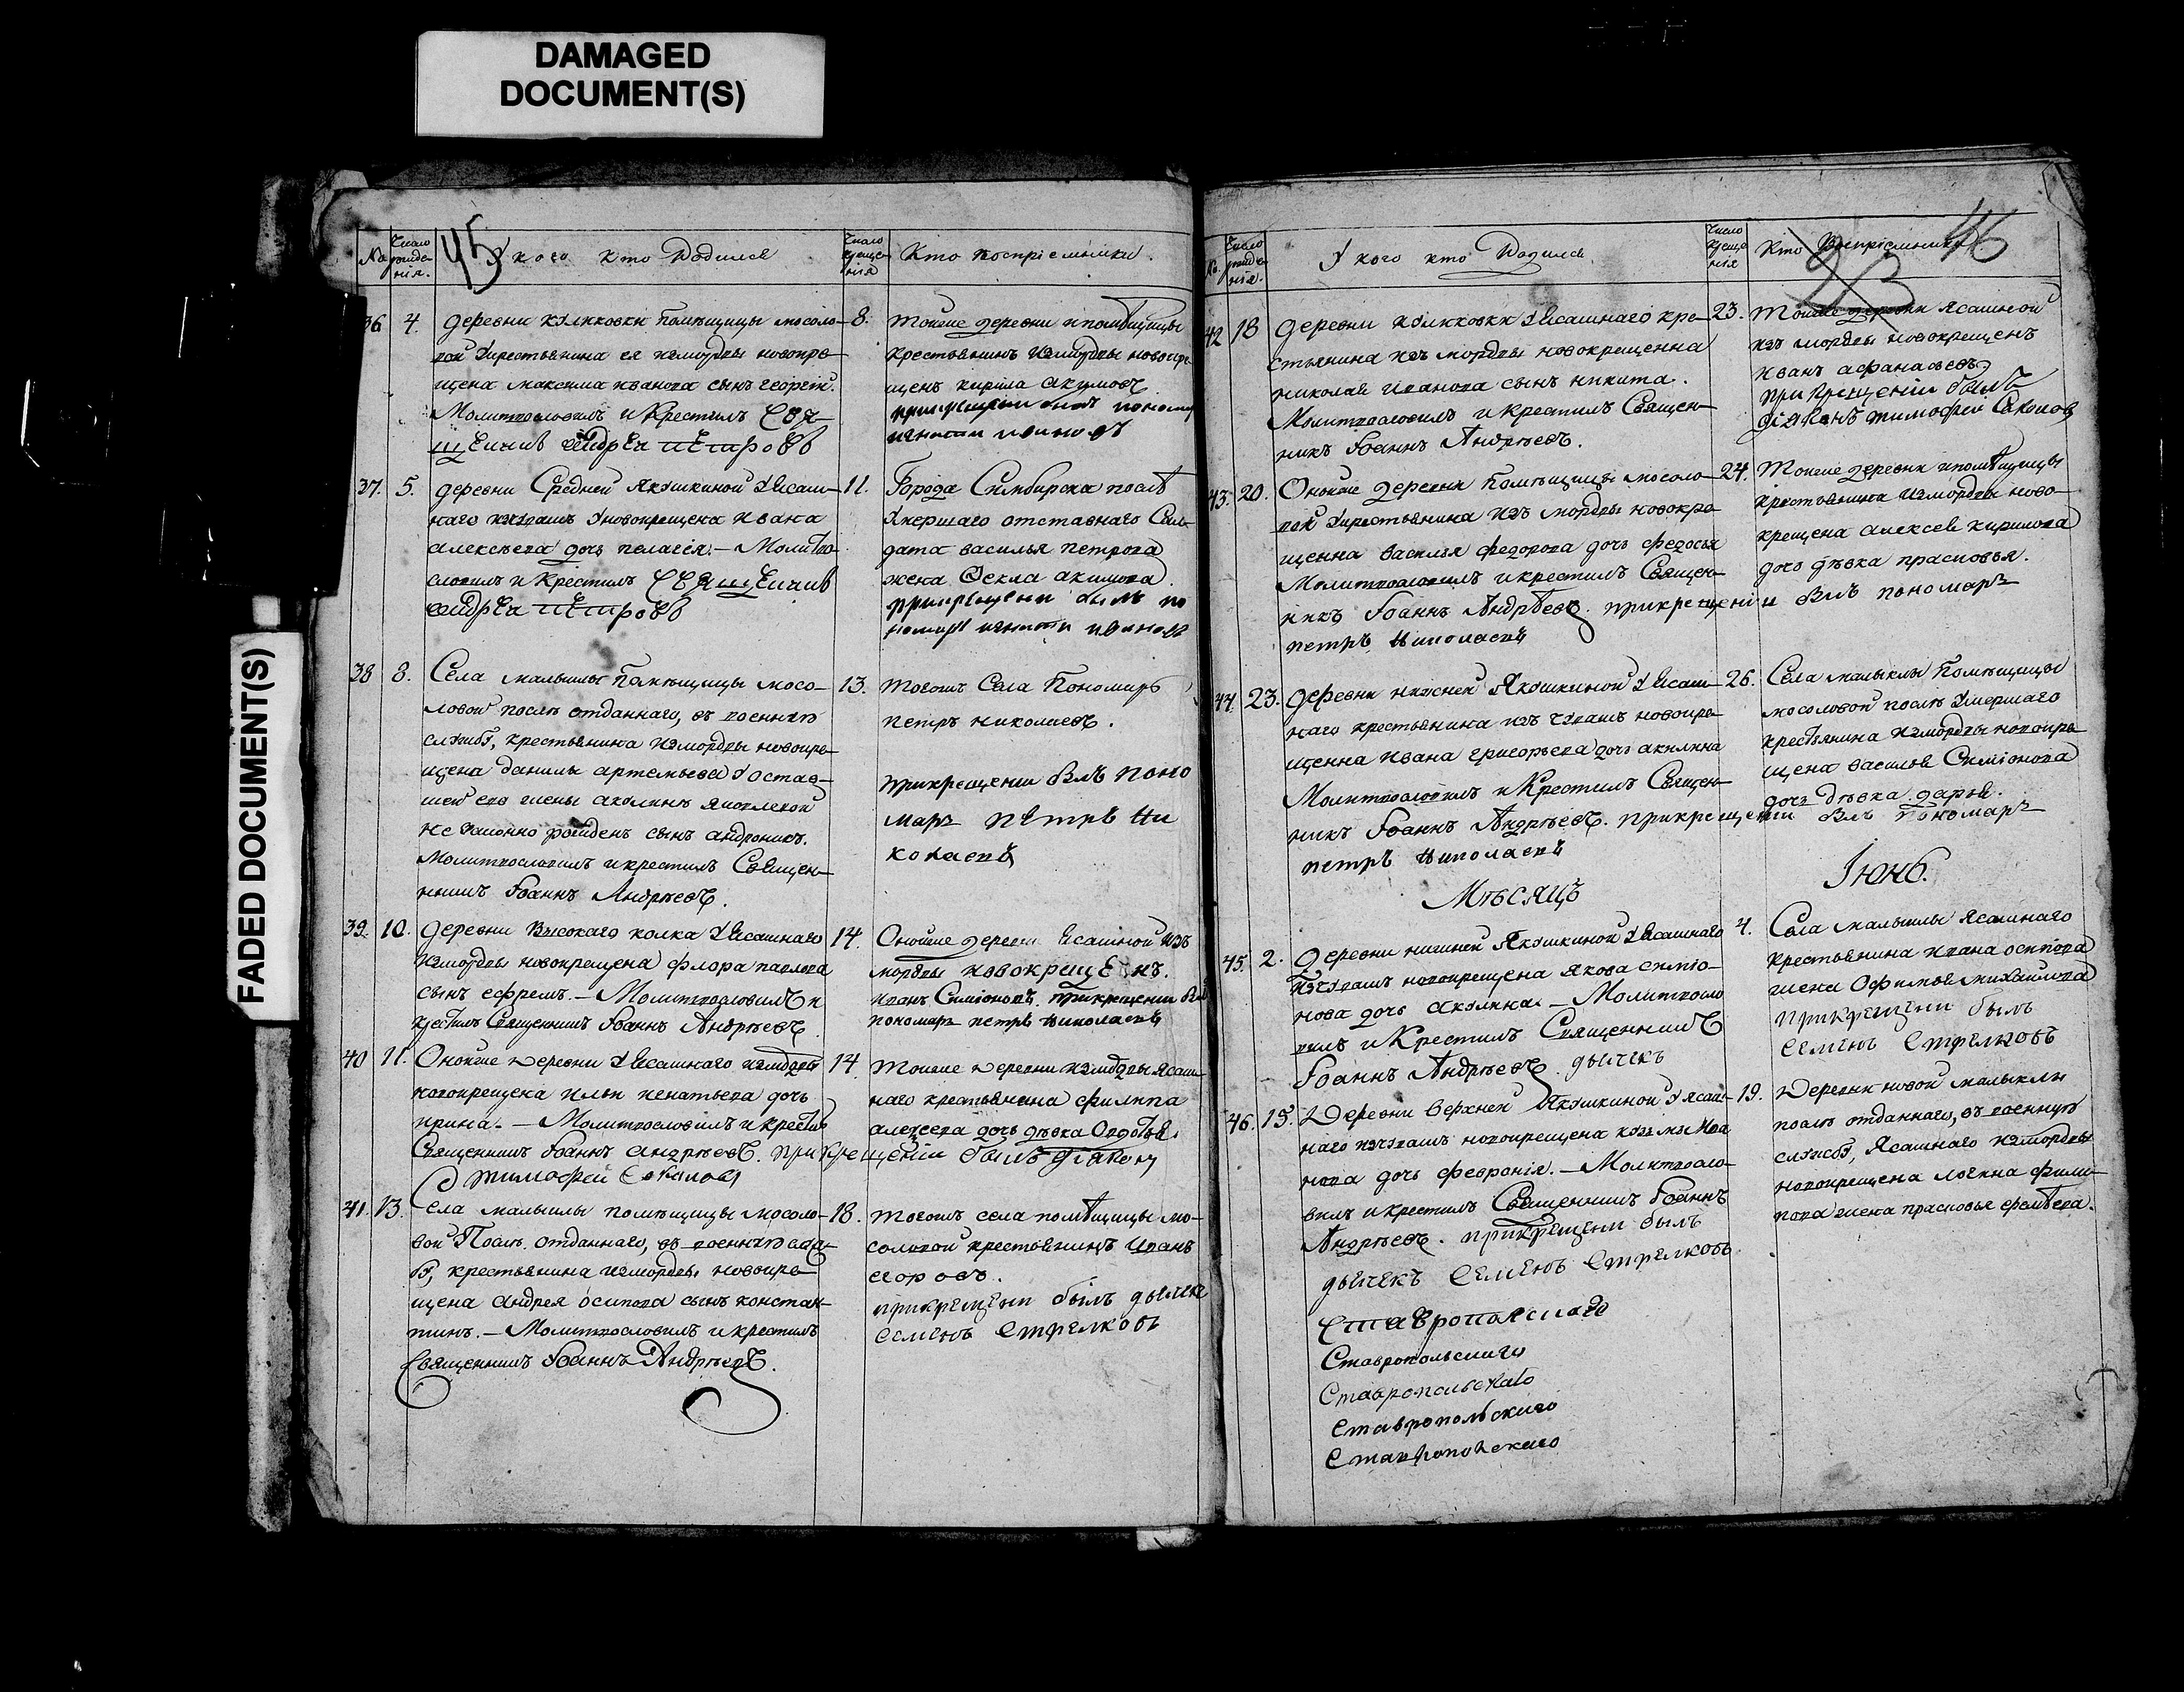 DAMAGED
DOCUMENT(S)
FADED DOCUMENT(S)
45
№ Число рожде нія. У кого кто Родился Число креще нія Кто воспріемники.
36 4. деревни куликовки помѣщицы мосоло-
вой Укрестьянина ея измордвы новокре-
щена максима иванова сынъ георгій.
Молитвословилъ и Крестилъ Свя-
щенникъ Андрей Петровъ
8. тоейже деревни ипомѣщицы
крестьянинъ измордвы новокре
щенъ кирила акимовъ
прикрещении былъ пономарь
игнати ивановъ
37. 5. деревни Средней Якушкиной Уясаш-
наго изчувашъ новокрещена ивана
алексѣева дочь пелагея. — Молитво-
словилъ и Крестилъ Священникъ
Андрей Петровъ
11. Города Симбирска послѣ
Умершаго отставнаго Сал-
дата василья петрова
жена Фекла акимова.
прикрещении былъ по
номарь игнати ивановъ
38 8. Села малыклы Помѣщицы мосо-
ловой послѣ отданнаго, въ военную
службу, крестьянина измордвы новокре-
щена данилы артемьева Уостав-
шей его жены акулины яковлевой
не законно рожденъ сынъ андроникъ.
Молитвословилъ икрестилъ Священ-
никъ Іоаннъ Андрѣевъ.
13. тогожъ Села Пономарь
петръ николаевъ.
прикрещении былъ поно
марь петръ Ни
колаевъ
39. 10. деревни Высокаго колка Уясашнаго
измордвы новокрещена флора павлова
сынъ ефремъ. — Молитвословилъ и
крестилъ Священникъ Іоаннъ Андрѣевъ.
14. Оной же деревни Ясашной изъ
мордвы новокрещенъ.
иванъ Симіоновъ. прикрещении былъ
пономарь петръ николаевъ
40 11. Оной же деревни Уясашнаго измордвы
новокрещена ильи игнатьева дочь
ирина. — Молитвословилъ и крестилъ
Священникъ Іоаннъ андрѣевъ. при Крещеніи былъ діаконъ
тимофей Соколовъ
14. тойже деревни измордвы ясаш-
наго крестьянина филипа
алексѣева дочь дѣвка Овдотья.
41. 13. Села малыклы помѣщицы мосоло-
вой Послѣ отданнаго, въ военную служ-
бу, крестьянина измордвы новокре-
щена андрея осипова сынъ констан-
тинъ. — Молитвословилъ икрестилъ
Священникъ Іоаннъ Андрѣевъ.
18. тогожъ села помѣщицы мо-
соловой крестьянинъ Иванъ
егоровъ.
прикрещени былъ дьячек
семенъ Стрелковъ
46
23
№. Число рожде нія. У кого кто Родился Число креще нія Кто Воспріемники
42 18 деревни куликовки Уясашнаго кре-
стьянина изъ мордвы новокрещенна
николая Иванова сынъ никита.
Молитвословилъ икрестилъ Священ-
никъ Іоаннъ Андрѣевъ.
23. Тойже деревни Ясашной
изъ мордвы новокрещенъ
иванъ афанасьевъ
при крещеніи былъ
діаконъ тимофей Соколовъ
43. 20. Оной же деревни Помѣщицы мосоло-
вой Укрестьянина изъ мордвы новокре-
щенна василья федорова дочь федосья
Молитвословилъ икрестилъ Священ-
никъ Іоаннъ Андрѣевъ. прикрещеніи былъ пономарь
петръ николаевъ
24. Тойже деревни ипомѣщицы
крестьянина измордвы ново-
крещена алексея кирилова
дочь дѣвка прасковья.
44. 23. деревни нижней Якушкиной Уясаш-
наго крестьянина изъ чувашъ новокре-
щенна ивана григорьева дочь акилина
Молитвословилъ и Крестилъ Священ-
никъ Іоаннъ Андрѣевъ. прикрещеніи былъ пономарь
петръ николаевъ
26. Села малыклы Помѣщицы
мосоловой послѣ Умершаго
крестьянина измордвы новокре
щена василья Симіонова
дочь дѣвка дарья.
Мѣсяцъ Іюнь.
45. 2. деревни нижней Якушкиной Уясашнаго
изчувашъ новокрещена якова симіо-
нова дочь акулина — Молитвосло
вилъ и Крестилъ Священникъ
Іоаннъ Андрѣевъ. дьячекъ
4. Села малыклы ясашнаго
крестьянина ивана осипова
жена Офимья михайлова
прикрещени былъ
семенъ Стрелковъ
46. 15. Деревни верхней Якушкиной Уясаш-
наго изчувашъ новокрещена кузьмы ива
нова дочь февронія. — Молитвосло-
вилъ икрестилъ Священникъ Іоаннъ
Андрѣевъ. прикрещени былъ
дьячекъ Семенъ Стрелковъ
19. Деревни новой малыклы
послѣ отданнаго, въ военную
службу, ясашнаго измордвы
новокрещена логина фили-
пова жена прасковья ефимьева.
Ставропольскаго
Ставропольскиго
Ставропольскаго
Ставропольскиго
Ставропольскаго